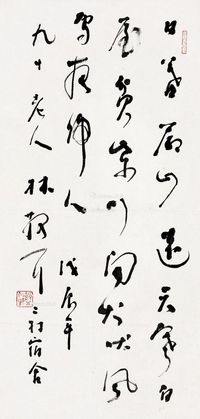 日暮蒼山遠天寒白
屋貧柴門聞犬吠風
雪夜歸人 戊辰年
九十老人林散耳 村宿舍